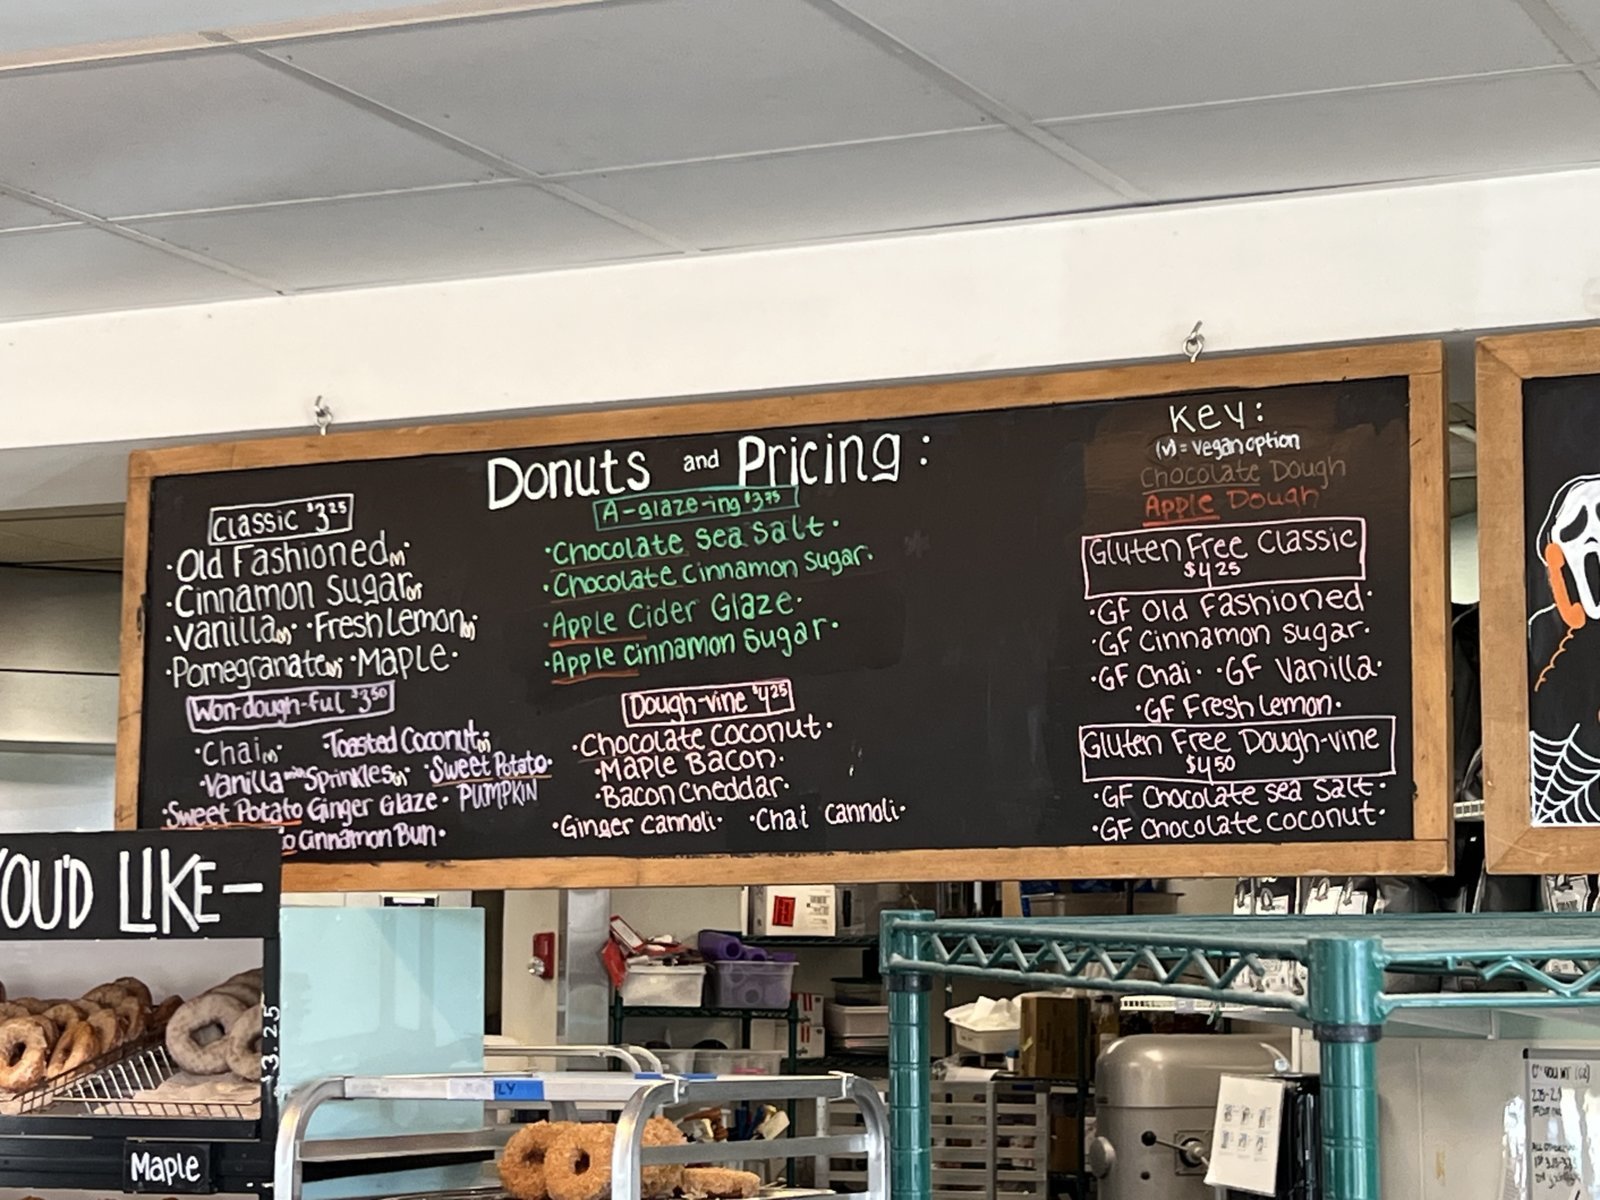 Donuts and Pricing:
Classic $3.25
·Old Fashioned(v)·
·Cinnamon Sugar(v)
·Vanilla(v)· ·Fresh Lemon(v)·
·Pomegranate(v)· ·Maple·
Won-dough-ful $3.50
·Chai(v)· ·Toasted Coconut(v)·
·Vanilla Sprinkles(v)· ·Sweet Potato·
·Sweet Potato Ginger Glaze· PUMPKIN
Cinnamon Bun·
A-glaze-ing $3.75
·Chocolate Sea Salt·
·Chocolate Cinnamon Sugar·
·Apple Cider Glaze·
·Apple Cinnamon Sugar·
Dough-vine $4.25
·Chocolate Coconut·
·Maple Bacon·
·Bacon Cheddar·
·Ginger Cannoli· ·Chai Cannoli·
Key:
(v) = vegan option
Chocolate Dough
Apple Dough
Gluten Free Classic
$4.25
·GF Old Fashioned·
·GF Cinnamon Sugar·
·GF Chai· ·GF Vanilla·
·GF Fresh Lemon·
Gluten Free Dough-vine
$4.50
·GF Chocolate Sea Salt·
·GF Chocolate Coconut·
YOU'D LIKE—
3.25
Maple